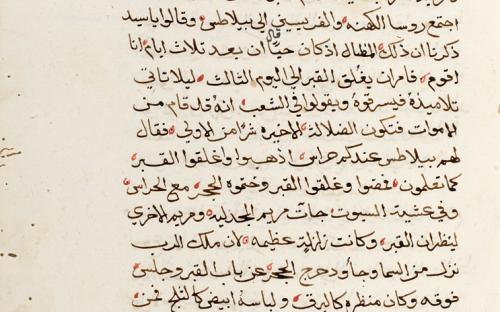 اجتمع روسا الكهنه والفريسيين الى بيلاطس وقالوا ياسيد
ذكرنا ان ذلك المظال اذ كان حيا قال ان بعد ثلاث ايام انا
اقوم فامر ان يغلق القبر الى اليوم الثالث ليلا تاتي
تلاميذه فيسرقوه ويقولوا في الشعب انه قد قام من
الاموات فتكون الضلالة الاخيره شرا من الاولى فقال
لهم بيلاطس عندكم حراس اذهبوا واغلقوا القبر
كما تعلمون فمضوا وغلقوا القبر وختموه الحجر مع الحراس
وفي عشية السبوت جات مريم المجدليه ومريم الاخرى
لينظران القبر وكانت زلزلة عظيمه لان ملاك الرب
نزل من السما وجا ودحرج الحجر عن باب القبر وجلس
فوقه وكان منظره كالبرق ولباسه ابيض كالثلج فمن